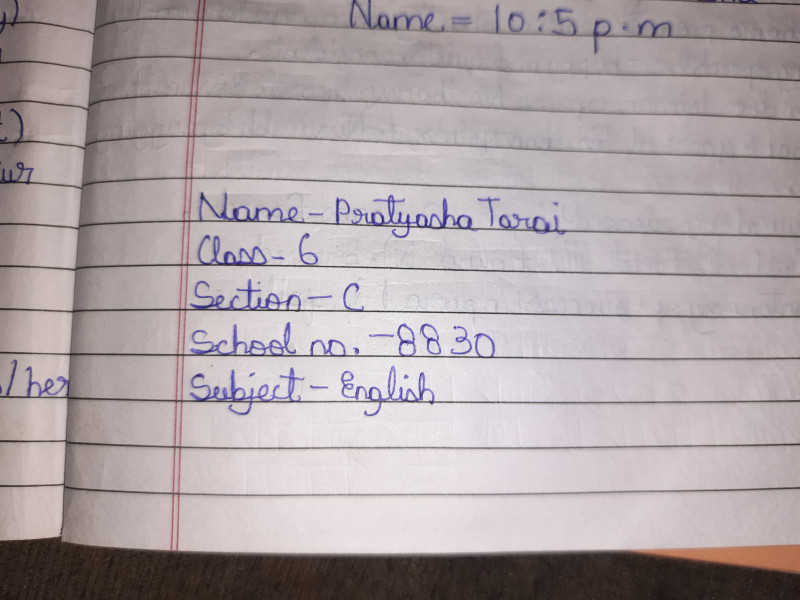 Name = 10:5 p.m
Name - Pratyasha Tarai
Class - 6
Section - C
School no. - 8830
/her
Subject - English